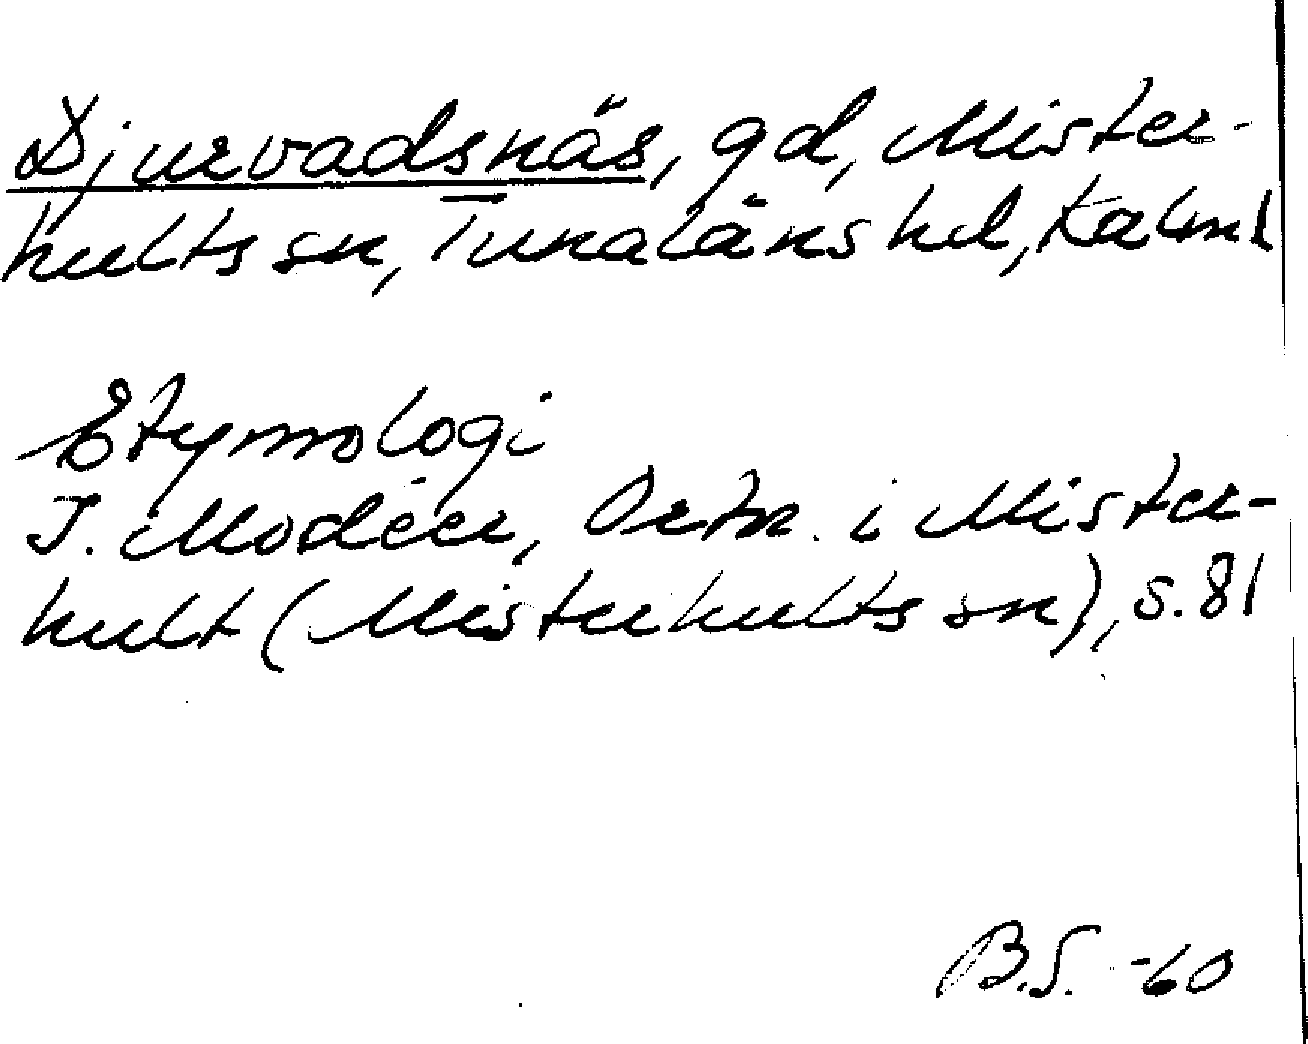 Djurvadsnäs, gd, Mister-
hults sn, Tunaläns hd, Kalm l
Etymologi
I. Modéer, Ortn. i Mister-
hult (Misterhults sn), s. 81
B.S. -60